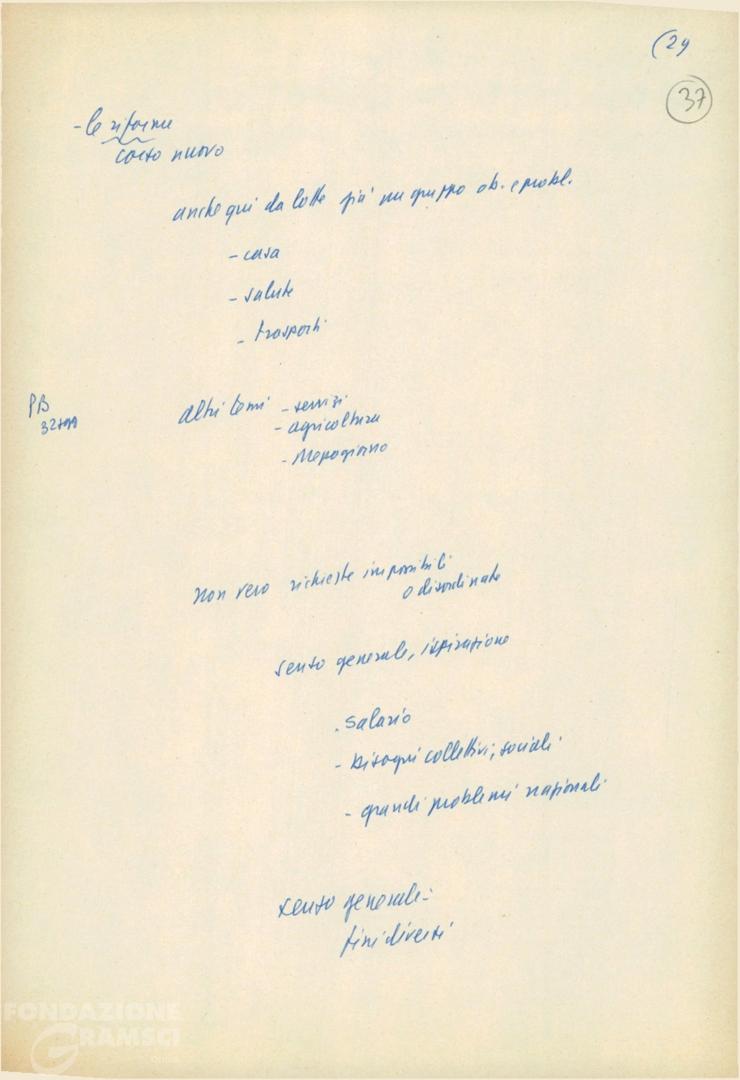 (29
37
- le riforme
corso nuovo
anche qui da lotte già un gruppo ob. e probl.
- casa
- salute
- trasporti
PB
altri temi - servizi
- agricoltura
- Mezzogiorno
non vero richieste impossibili
o disordinate
senso generale, ispirazione
. salario
- bisogni collettivi, sociali
- grandi problemi nazionali
senso generale:
fini diversi
FONDAZIONE
GRAMSCI